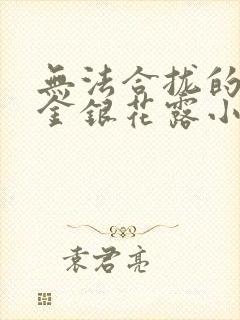 無法合拢的
金銀花露小
袁君亮